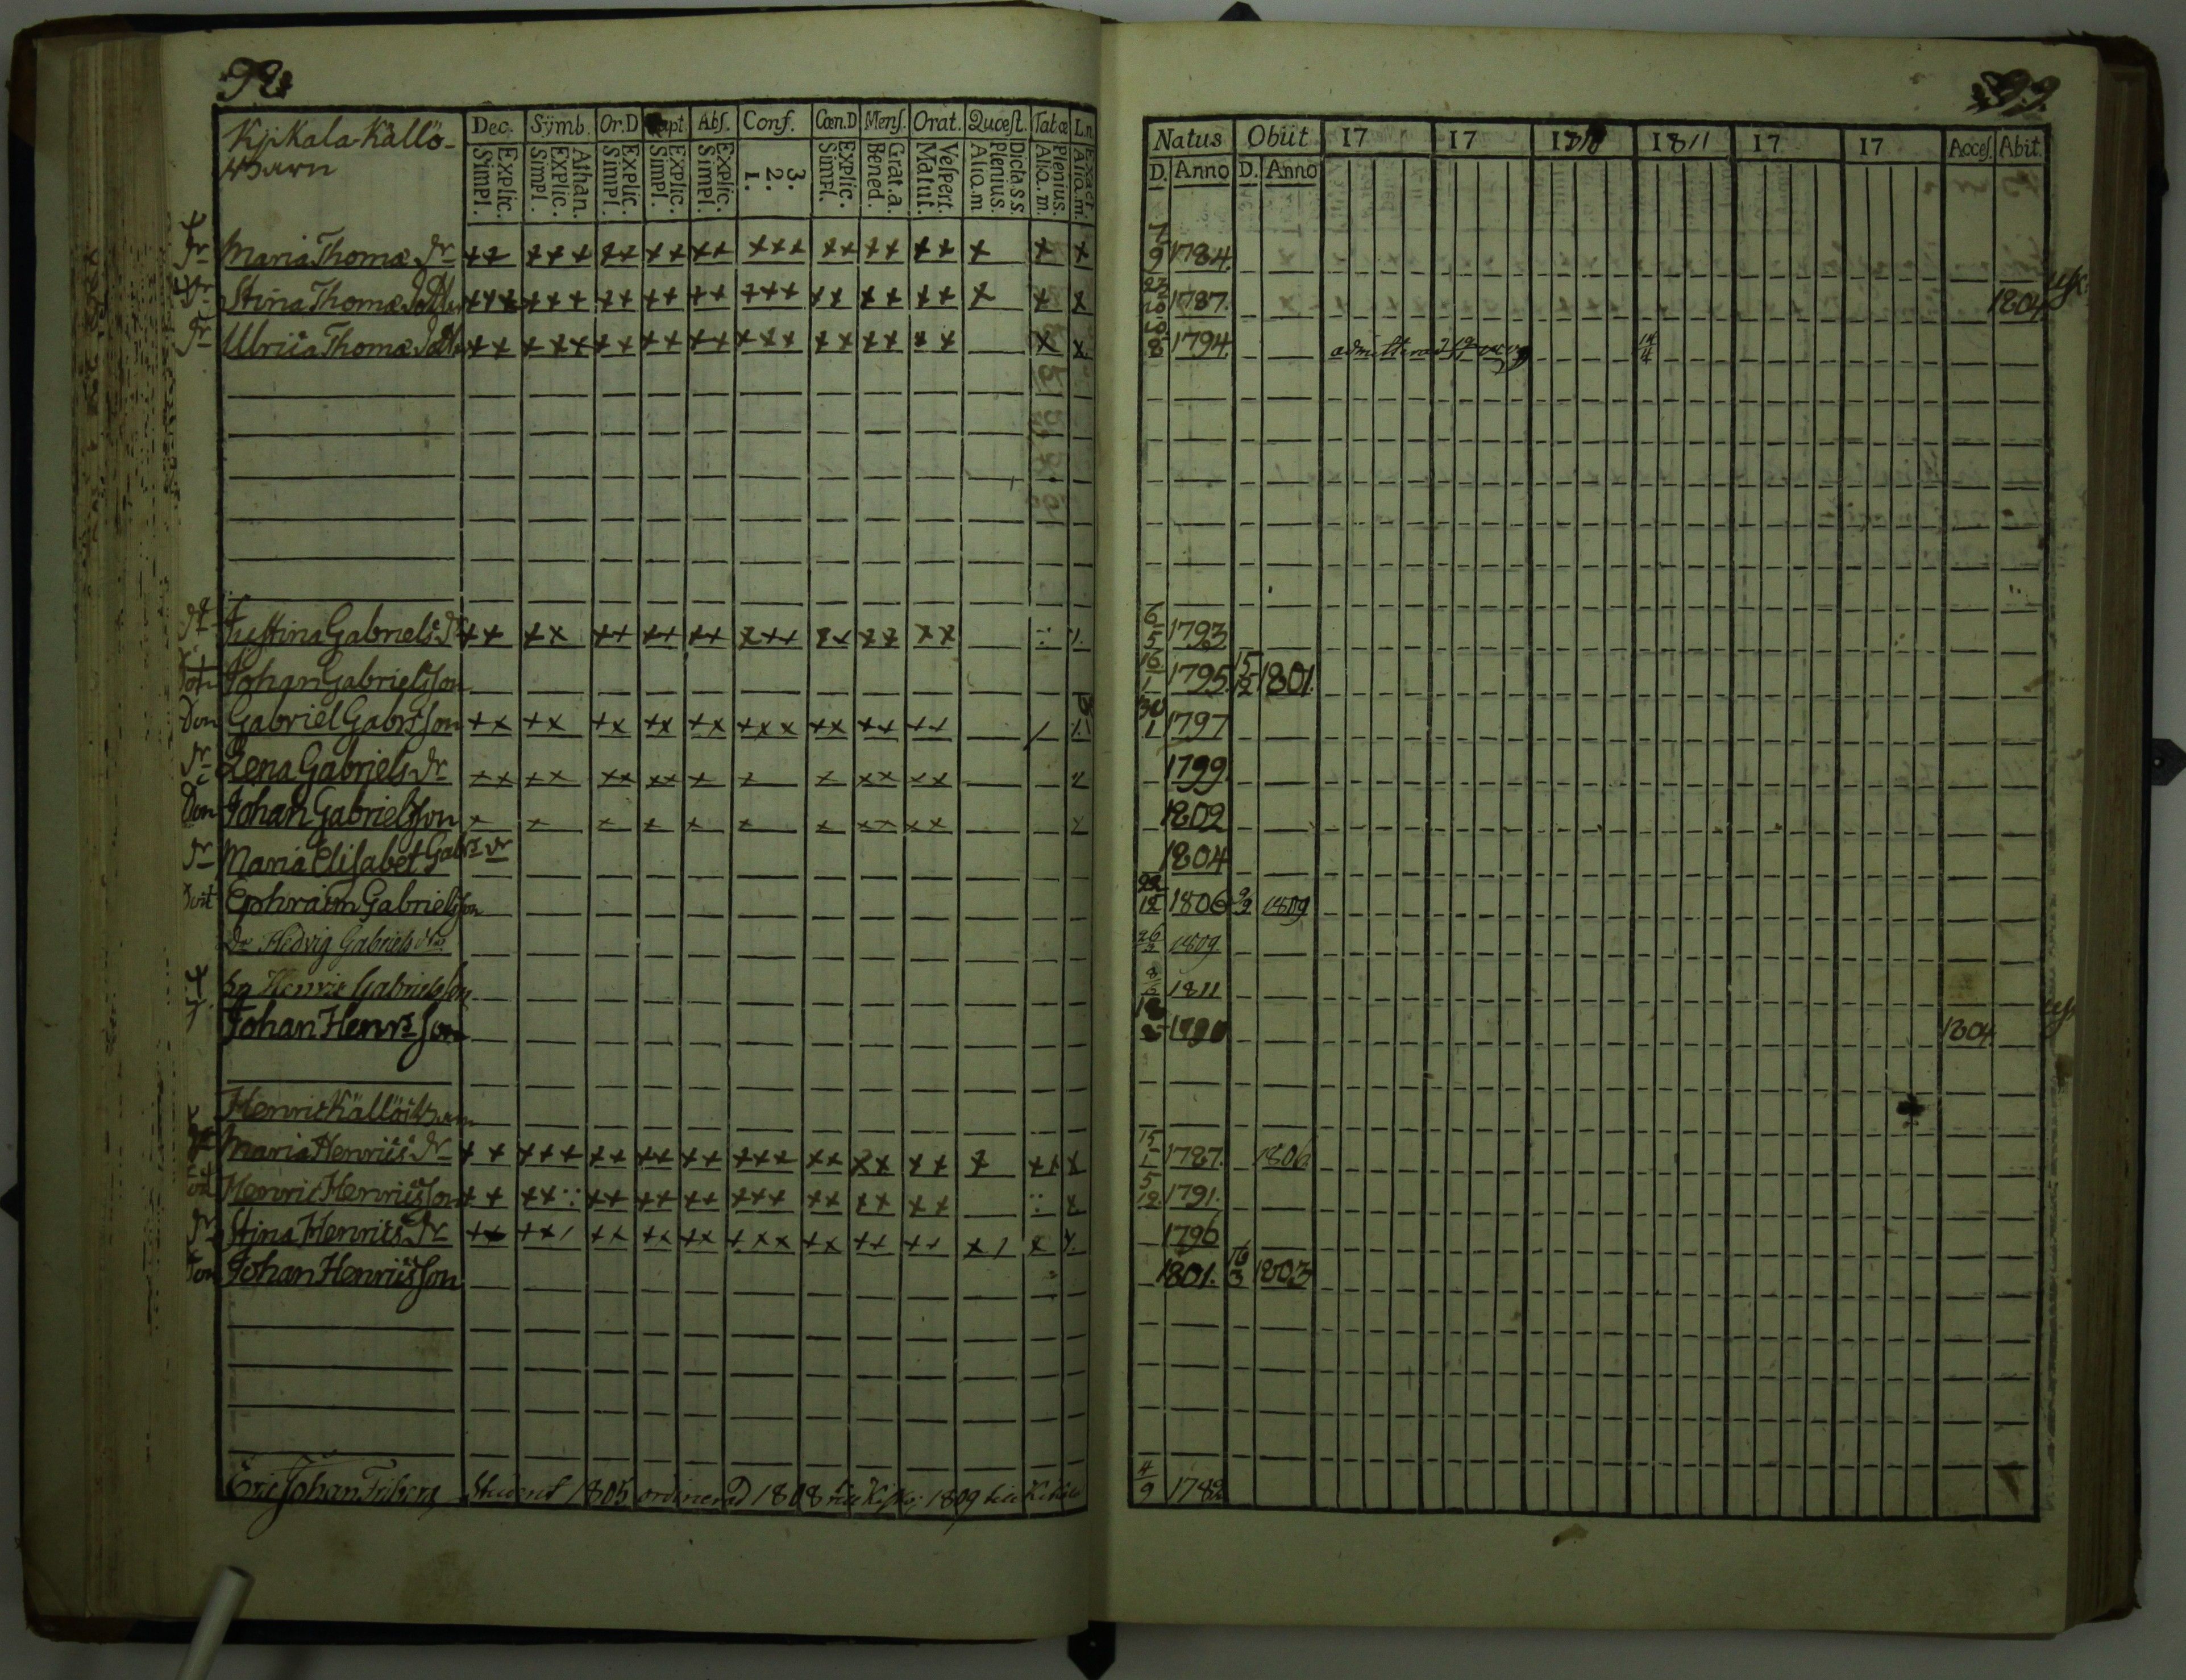 92
Kjikala-Källö-
Barn
Dec. Symb. Or.D Bapt. Abs. Conf. Cœn.D Mens. Orat. Quœst. Tabœ L.n
Explic. Simpl. Athan. Explic. Simpl. Explic. Simpl. Explic. Simpl. Explic. Simpl. 3. 2. 1. Explic. Simpl. Grat.a. Bened. Vespert. Matut. Dicta S S. Plenius. Aliq.m Plenius. Aliq.m. Exact. Aliq.m.
Dr Maria Thomæ Dr ++ +++ ++ ++ ++ +++ ++ ++ ++ + + +
Dr Stina Thomæ +++ +++ ++ ++ ++ +++ ++ ++ ++ + + +
Dr Ulrica Thomæ ++ +++ ++ ++ ++ +++ ++ ++ ++ + +
Dr Justina Gabriels Dr ++ ++ ++ ++ ++ +++ ++ ++ ++
Johan Gabrielsson
Son Gabriel Gabrsson ++ ++ ++ ++ ++ +++ ++ ++ ++
Dr Lena Gabriels Dr ++ ++ ++ ++ + + + ++ ++
Son Johan Gabrielsson + + + + + + + ++ ++
Dr Maria Elisabet Gabrs Dr
Ephraim Gabrielsson
Dr Hedvig Gabriels
Sn Henric Gabrielsson
Johan Henrsson
Henric Källös Barn
Maria Henrics Dr ++ +++ ++ ++ ++ +++ ++ ++ ++ + ++ +
Henric Henricsson ++ ++ ++ ++ ++ +++ ++ ++ ++ +
Dr Stina Henrics Dr ++ ++ ++ ++ ++ +++ ++ ++ ++ + +
Son Johan Henricsson
Eric Johan Friberg Student 1805 ordinerad 1808 till Kisko; 1809 till Kikala
99
Natus Obiit 17 17 1810 1811 17 17 Acces. Abit.
D. Anno D. Anno
7/9 1784.
23/10 1787. 1804
10/8 1794. admitterad 14/4
6/5 1793
16/1 1795 15/12 1801.
30/1 1797
1799
1802
1804
22/12 1806 9/2 1809
26/2 1809
8/5 1811
1790 1804
15/1 1787. 1806
5/12 1791.
1796
1801. 16/3 1803
4/9 1782